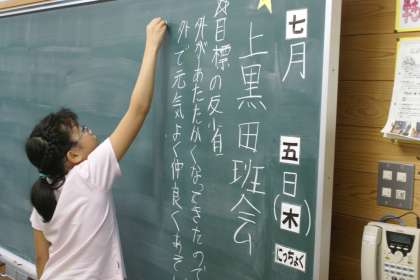 七月五日(木)
にっちょく
上黒田班会
目標の反省
外があたたかくなってきたので
外で元気よく仲良くあそ